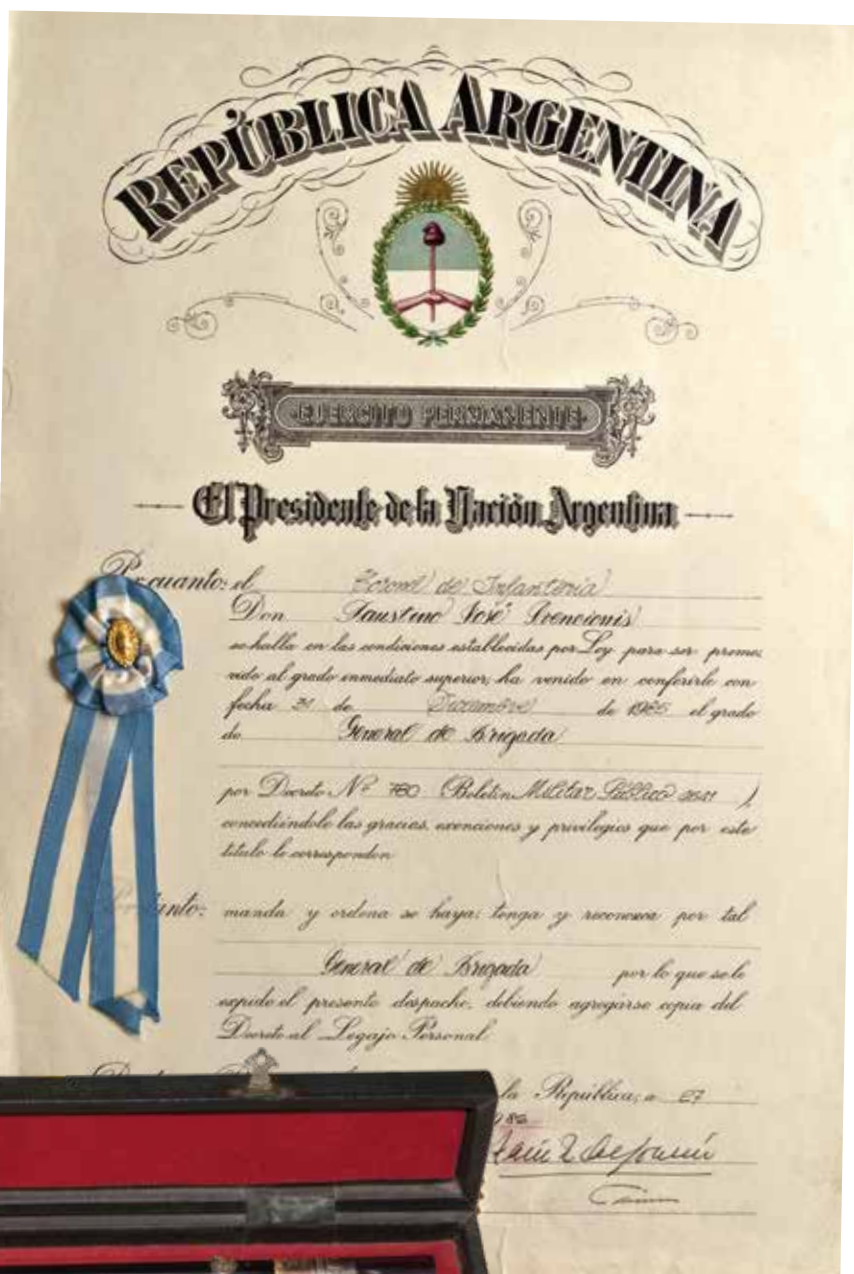 REPÚBLICA ARGENTINA
EJERCITO PERMANENTE
El Presidente de la Nación Argentina
Por cuanto: el Coronel de Infantería
Don Faustino José Svencionis
se halla en las condiciones establecidas por Ley para ser promo-
vido al grado inmediato superior, ha venido en conferirle con
fecha 31 de Diciembre de 1985 el grado
de General de Brigada
por Decreto Nº 780 (Boletín Militar Público )
concediéndole las gracias, exenciones y privilegios que por este
título le corresponden
Por tanto: manda y ordena se haya, tenga y reconozca por tal
General de Brigada por lo que se le
expide el presente despacho, debiendo agregarse copia del
Decreto al Legajo Personal
la República, a 27
986